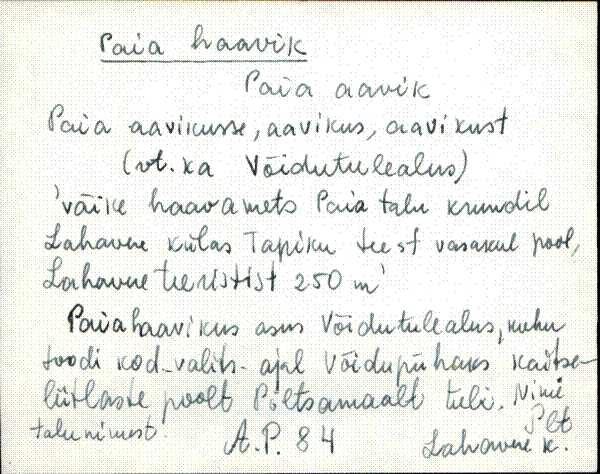 Paia haavik
Paia aavik
Paia aavikusse, aavikus, aavikust
(vt. ka Võidutulealus)
'väike haavamets Paia talu krundil
Lahavere külas Tapiku teest vasakul pool,
Lahavere teeristist 250 m'
Paia haavikus asus Võidutulealus, kuhu
toodi kod. valits. ajal Võidupühaks kaitse-
liitlaste poolt Põltsamaalt tuli. Nimi
talu nimest. A.P. 84 Plt
Lahavere k.